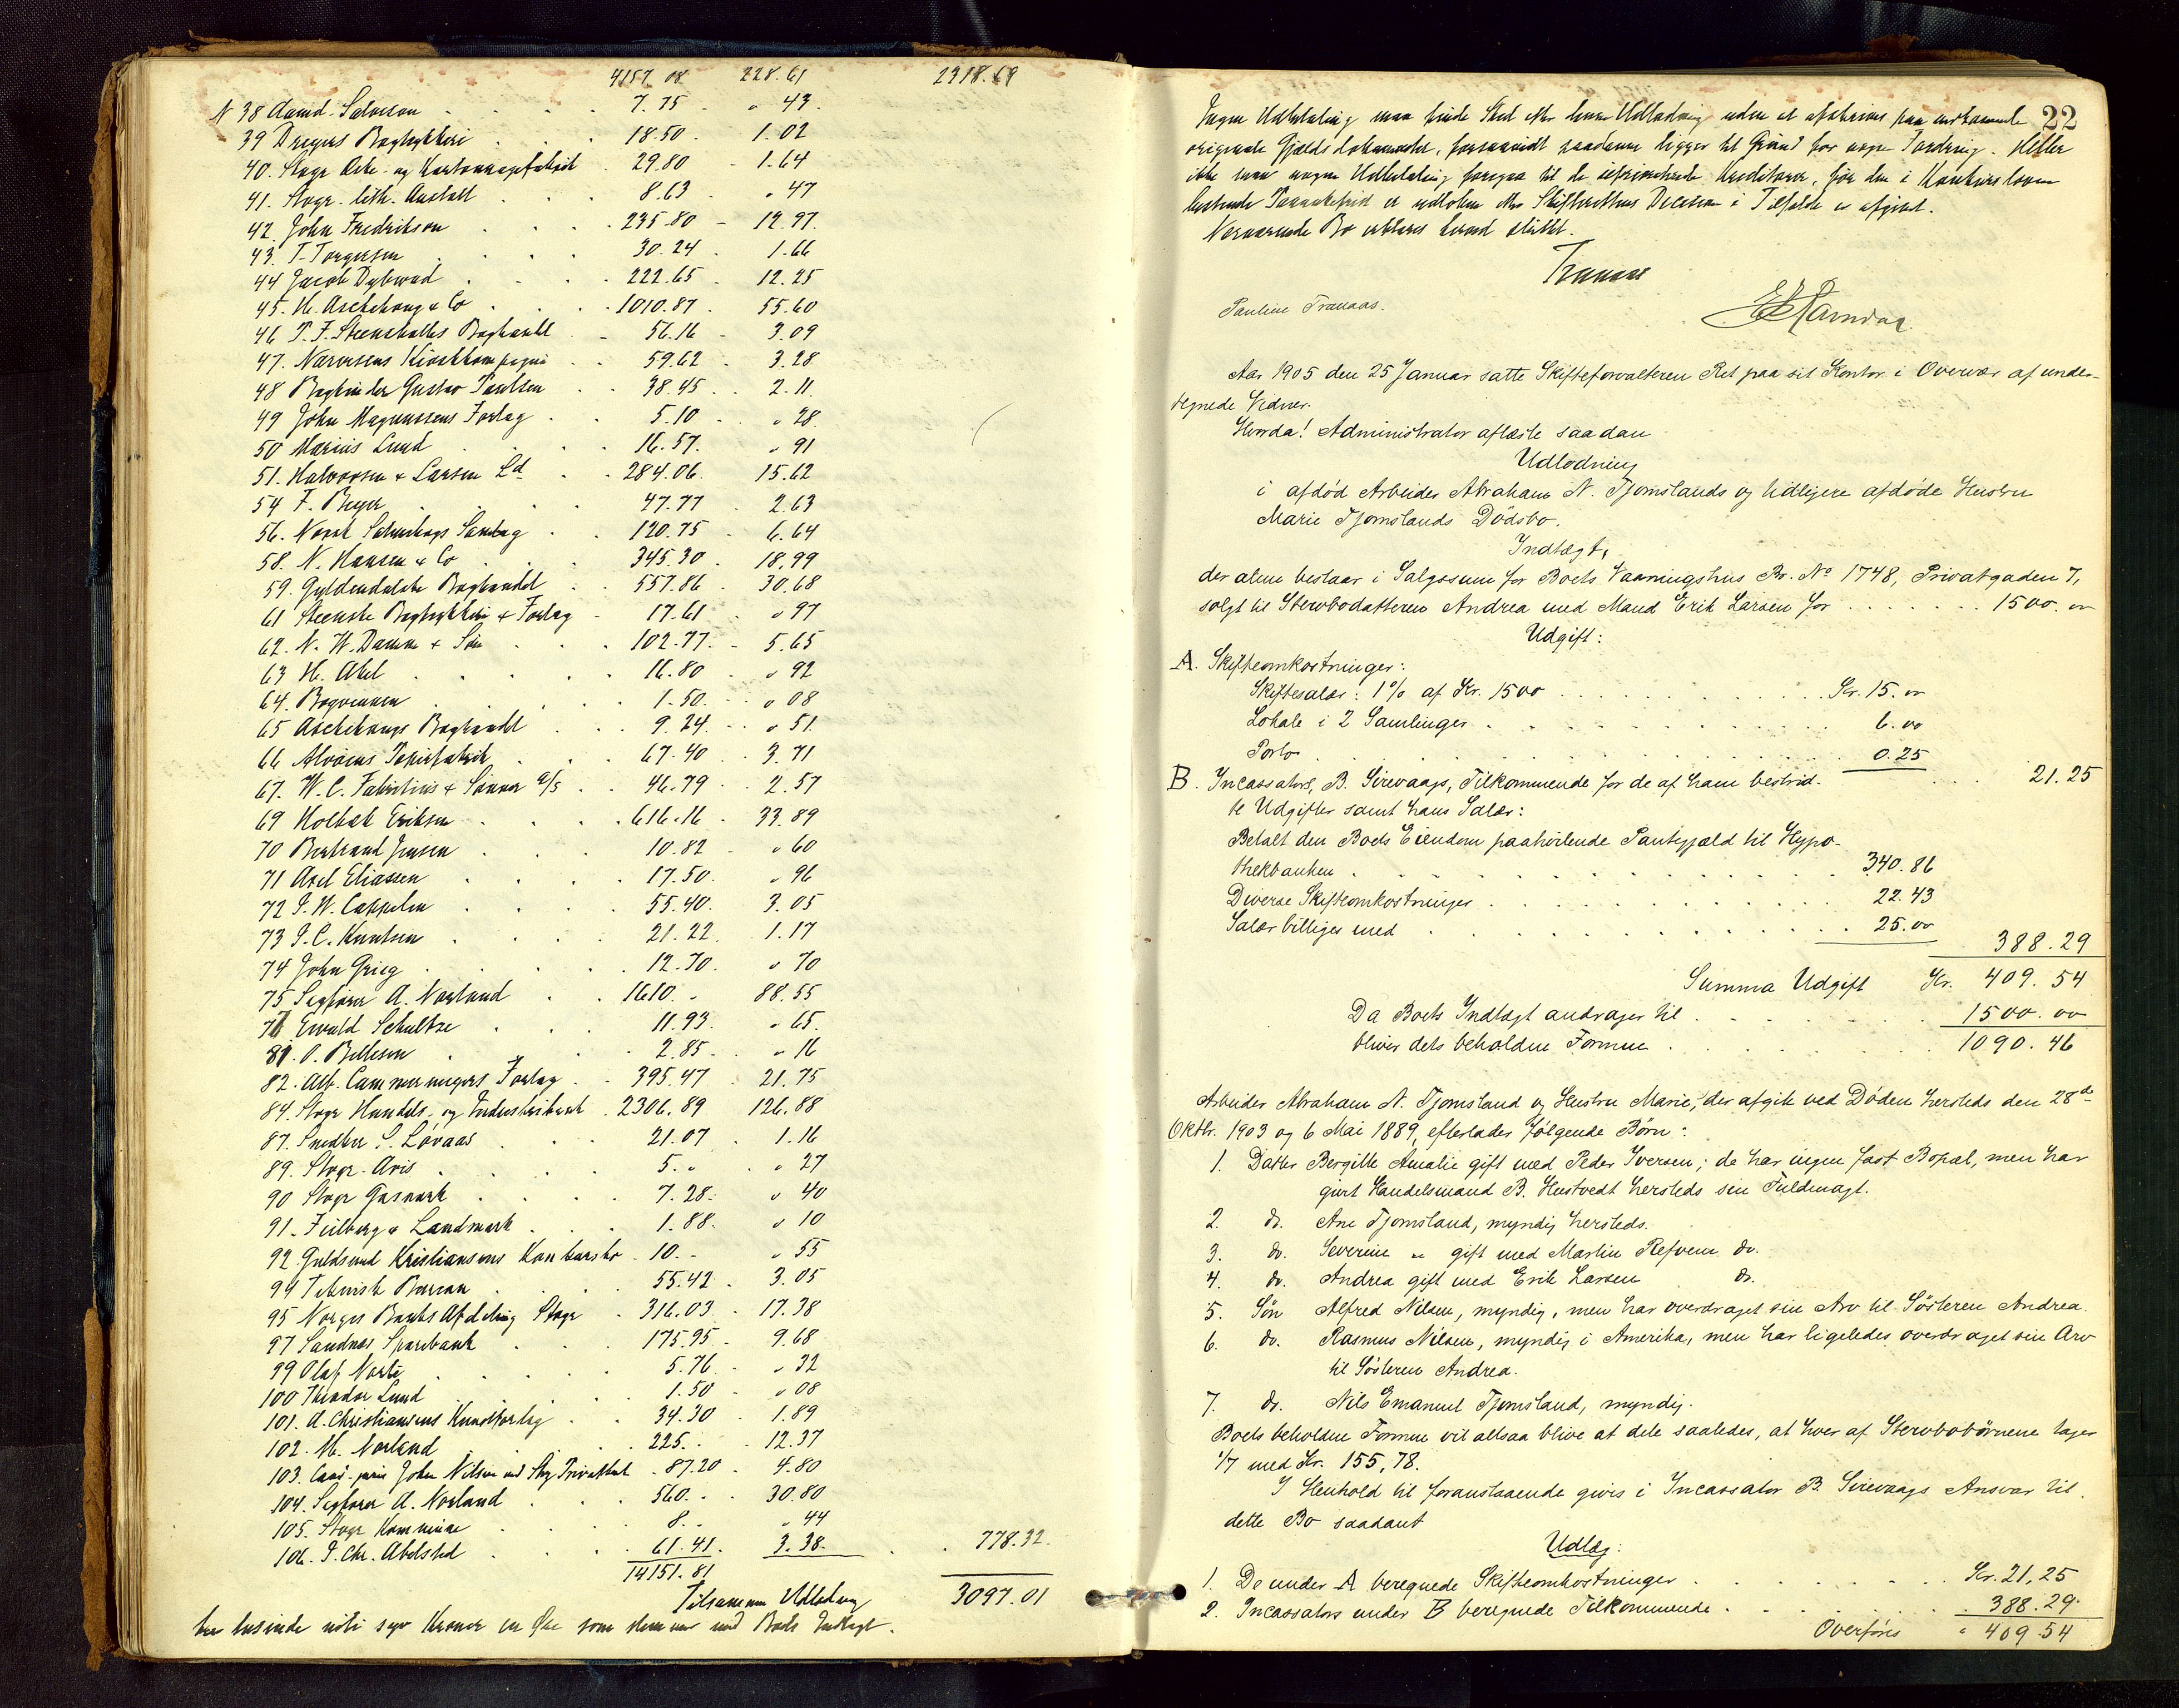 4157.08 228.61 2318.69
N 38 Aamd. Salvesen 7.75 " 43.
39 Dreyers Bogtrykkeri 18.50 1.02
40. Stvgr Æske- og Kartonnagefabrik 29.80 1.64
41. Stvgr. lith. Anstalt 8.63 " 47
42. John Fredrikson 235.80 12.97.
43. T. Torgersen 30.24 1.66
44 Jacob Dybwad 222.65 12.25
45. H. Aschehoug & Co 1010.87 55.60
46 P. F. Steensballes Boghandel 56.16 3.09
47. Narvesens Kioskkompagni 59.62 3.28
48 Bogbinder Gustav Paulsen 38.45 2.11.
49 John Magnussens Forlag 5.10 " 28.
50 Marius Lund 16.57. " 91
51. Halvorsen & Larsen Ld 284.06. 15.62
54 F. Beyer 47.77 2.63
56. Norsk Salmebogs Samlag 120.75 6.64
58. N. Hansen & Co 345.30 18.99
59. Gyldendalske Boghandel 557.86 30.68
61 Steenske Bogtrykkeri & Forlag 17.61 " 97
62. N. W. Damm & Søn 102.77. 5.65
63 H. Abel 16.80 " 92
64. Bogvennen 1.50. " 08
65 Aschehougs Boghandel 9.24. " 51.
66 Alvøens Papirfabrik 67.40 3.71
67. W. C. Fabritius & Sønner a/s 46.79 2.57
69 Holbæk Eriksen 616.16 33.89
70 Bertrand Jensen 10.82 " 60
71 Axel Eliassen 17.50. " 96
72 J. W. Cappelen 55.40. 3.05
73 J. C. Knutsen 21.22. 1.17
74 John Grieg 12.70. " 70
75 Sagfører A. Norland 1610. " 88.55
76 Ewald Schultze 11.93. " 65.
81. O. Bellesen 2.85. " 16
82. Alb. Cammermeyers Forlag 395.47 21.75
84. Stvgr Handels- og Industribank 2306.89 126.88
87. Snedker S. Lövaas 21.07 1.16
89. Stvgr. Avis 5. " " 27
90 Stvgr Gasværk 7.28. " 40
91. Fielberg & Landmark 1.88. " 10
92. Guldsmed Kristiansens Konkursbo 10. " 55
94 Teknisk Bureau 55.42. 3.05
95 Norges Banks Afdeling Stvgr 316.03 17.38
97 Sandnæs Sparebank 175.95 9.68
99 Olaf Norli 5.76 " 32
100 Theodor Lund 1.50 " 08
101. A. Christiansens Kunstforlag 34.30 1.89
102. M. Norland 225. 12.37
103. Cand. juris John Nilsen ved Stvg Privatbank 87.20 4.80
104. Sagfører A. Norland 560. 30.80
105. Stvgr Kommune 8. " 44
106. J. Chr. Abelsted 61.41. 3.38. 778.32.
14151.81
Tilsammen Udlodning 3097.01
tre tusinde niti syv Kroner en Øre som stemmer med Boets Indtægt.
22
Ingen Udbetaling maa finde Sted efter denne Udlodning uden at afskrives paa vedkommende
originale Gjældsdokumenter, forsaavidt saadanne ligger til Grund for nogen Fordring. Heller
ikke maa nogen Udbetaling foregaa til de uprivilegerede Kreditorer, før den i Konkursloven
bestemte Paaankefrist er udløben eller Skifterettens Decision i Tilfælde er afgivet.
Nærværende Bo erklæres herved sluttet.
Tranaas
Pauline Tranaas.
Aar 1905 den 25 Januar satte Skifteforvalteren Ret paa sit Kontor i Overvær af under-
tegnede Vidner.
Hvorda! Administrator aflæste saadan
Udlodning
i afdød Arbeider Abraham N. Tjomslands og tidligere afdøde Hustru
Marie Tjomslands Dødsbo.
Indtægt,
der alene bestaar i Salgssum for Boets Vaaningshus Br. No 1748, Privatgaden 7,
solgt til Stervbodatteren Andrea med Mand Erik Larsen for 1500. "
Udgift:
A. Skifteomkostninger:
Skiftesalær: 1% af Kr. 1500 Kr. 15. "
Lokale i 2 Samlinger 6.00
Porto 0.25
21.25
B. Incassators, B. Sirevaags, Tilkommende for de af ham bestrid-
te Udgifter samt hans Salær:
Betalt den Boets Eiendom paahvilende Pantegjæld til Hypo-
thekbanken 340.86
Diverse Skifteomkostninger 22.43
Salær billiges med 25.00
388.29
Summa Udgift Kr. 409.54
Da Boets Indtægt andrager til 1500.00
bliver dets beholdne Formue 1090.46
Arbeider Abraham N. Tjomsland og Hustru Marie, der afgik ved Døden hersteds den 28de
Oktbr. 1903 og 6 Mai 1889, efterlader følgende Børn:
1. Datter Bergitte Amalie gift med Peder Iversen; de har ingen fast Bopæl, men har
givet Handelsmand B. Hustvedt hersteds sin Fuldmagt.
2. do. Ane Tjomsland, myndig hersteds.
3. do. Severine " gift med Martin Refvem do.
4. do. Andrea gift med Erik Larsen do.
5. Søn Alfred Nilsen, myndig, men har overdraget sin Arv til Søsteren Andrea.
6. do. Rasmus Nilsen, myndig i Amerika, men har ligeledes overdraget sin Arv
til Søsteren Andrea.
7. do. Nils Emanuel Tjomsland, myndig.
Boets beholdne Formue vil altsaa blive at dele saaledes, at hver af Stervbobørnene tager
1/7 med Kr. 155,78.
I Henhold til foranstaaende givis i Incassator B. Sirevaags Ansvar til
dette Bo saadant
Udlæg:
1. De under A beregnede Skifteomkostninger Kr. 21,25
2. Incassators under B beregnede Tilkommende 388.29.
Overføres " 409.54